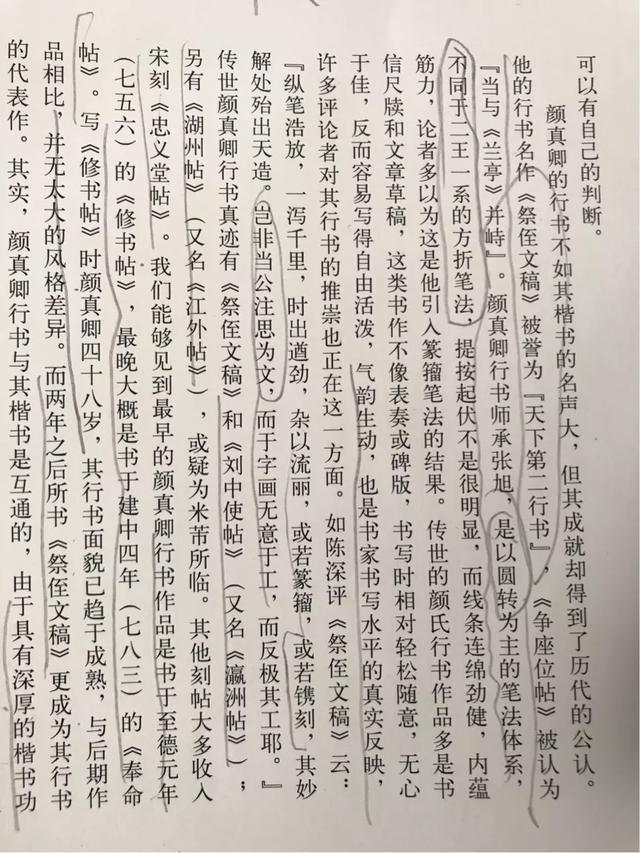 可以有自己的判断。
颜真卿的行书不如其楷书的名声大，但其成就却得到了历代的公认。
他的行书名作《祭侄文稿》被誉为『天下第二行书』，《争座位帖》被认为
『当与《兰亭》并峙』。颜真卿行书师承张旭，是以圆转为主的笔法体系，
不同于二王一系的方折笔法，提按起伏不是很明显，而线条连绵劲健，内蕴
筋力，论者多以为这是他引入篆籀笔法的结果。传世的颜氏行书作品多是书
信尺牍和文章草稿，这类书作不像表奏或碑版，书写时相对轻松随意，无心
于佳，反而容易写得自由活泼，气韵生动，也是书家书写水平的真实反映，
许多评论者对其行书的推崇也正在这一方面。如陈深评《祭侄文稿》云：
『纵笔浩放，一泻千里，时出遒劲，杂以流丽，或若篆籀，或若镌刻，其妙
解处殆出天造。岂非当公注思为文，而于字画无意于工，而反极其工耶。』
传世颜真卿行书真迹有《祭侄文稿》和《刘中使帖》（又名《瀛洲帖》）；
另有《湖州帖》（又名《江外帖》），或疑为米芾所临。其他刻帖大多收入
宋刻《忠义堂帖》。我们能够见到最早的颜真卿行书作品是书于至德元年
（七五六）的《修书帖》，最晚大概是书于建中四年（七八三）的《奉命
帖》。写《修书帖》时颜真卿四十八岁，其行书面貌已趋于成熟，与后期作
品相比，并无太大的风格差异。而两年之后所书《祭侄文稿》更成为其行书
的代表作。其实，颜真卿行书与其楷书是互通的，由于具有深厚的楷书功